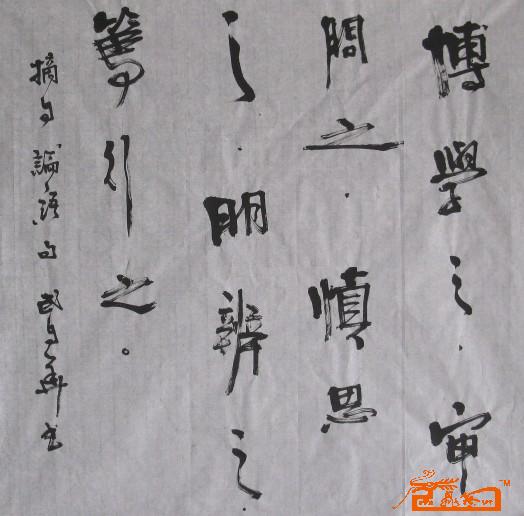 博學之.审
問之.慎思
之.明辨之.
篤行之。
摘自論語句